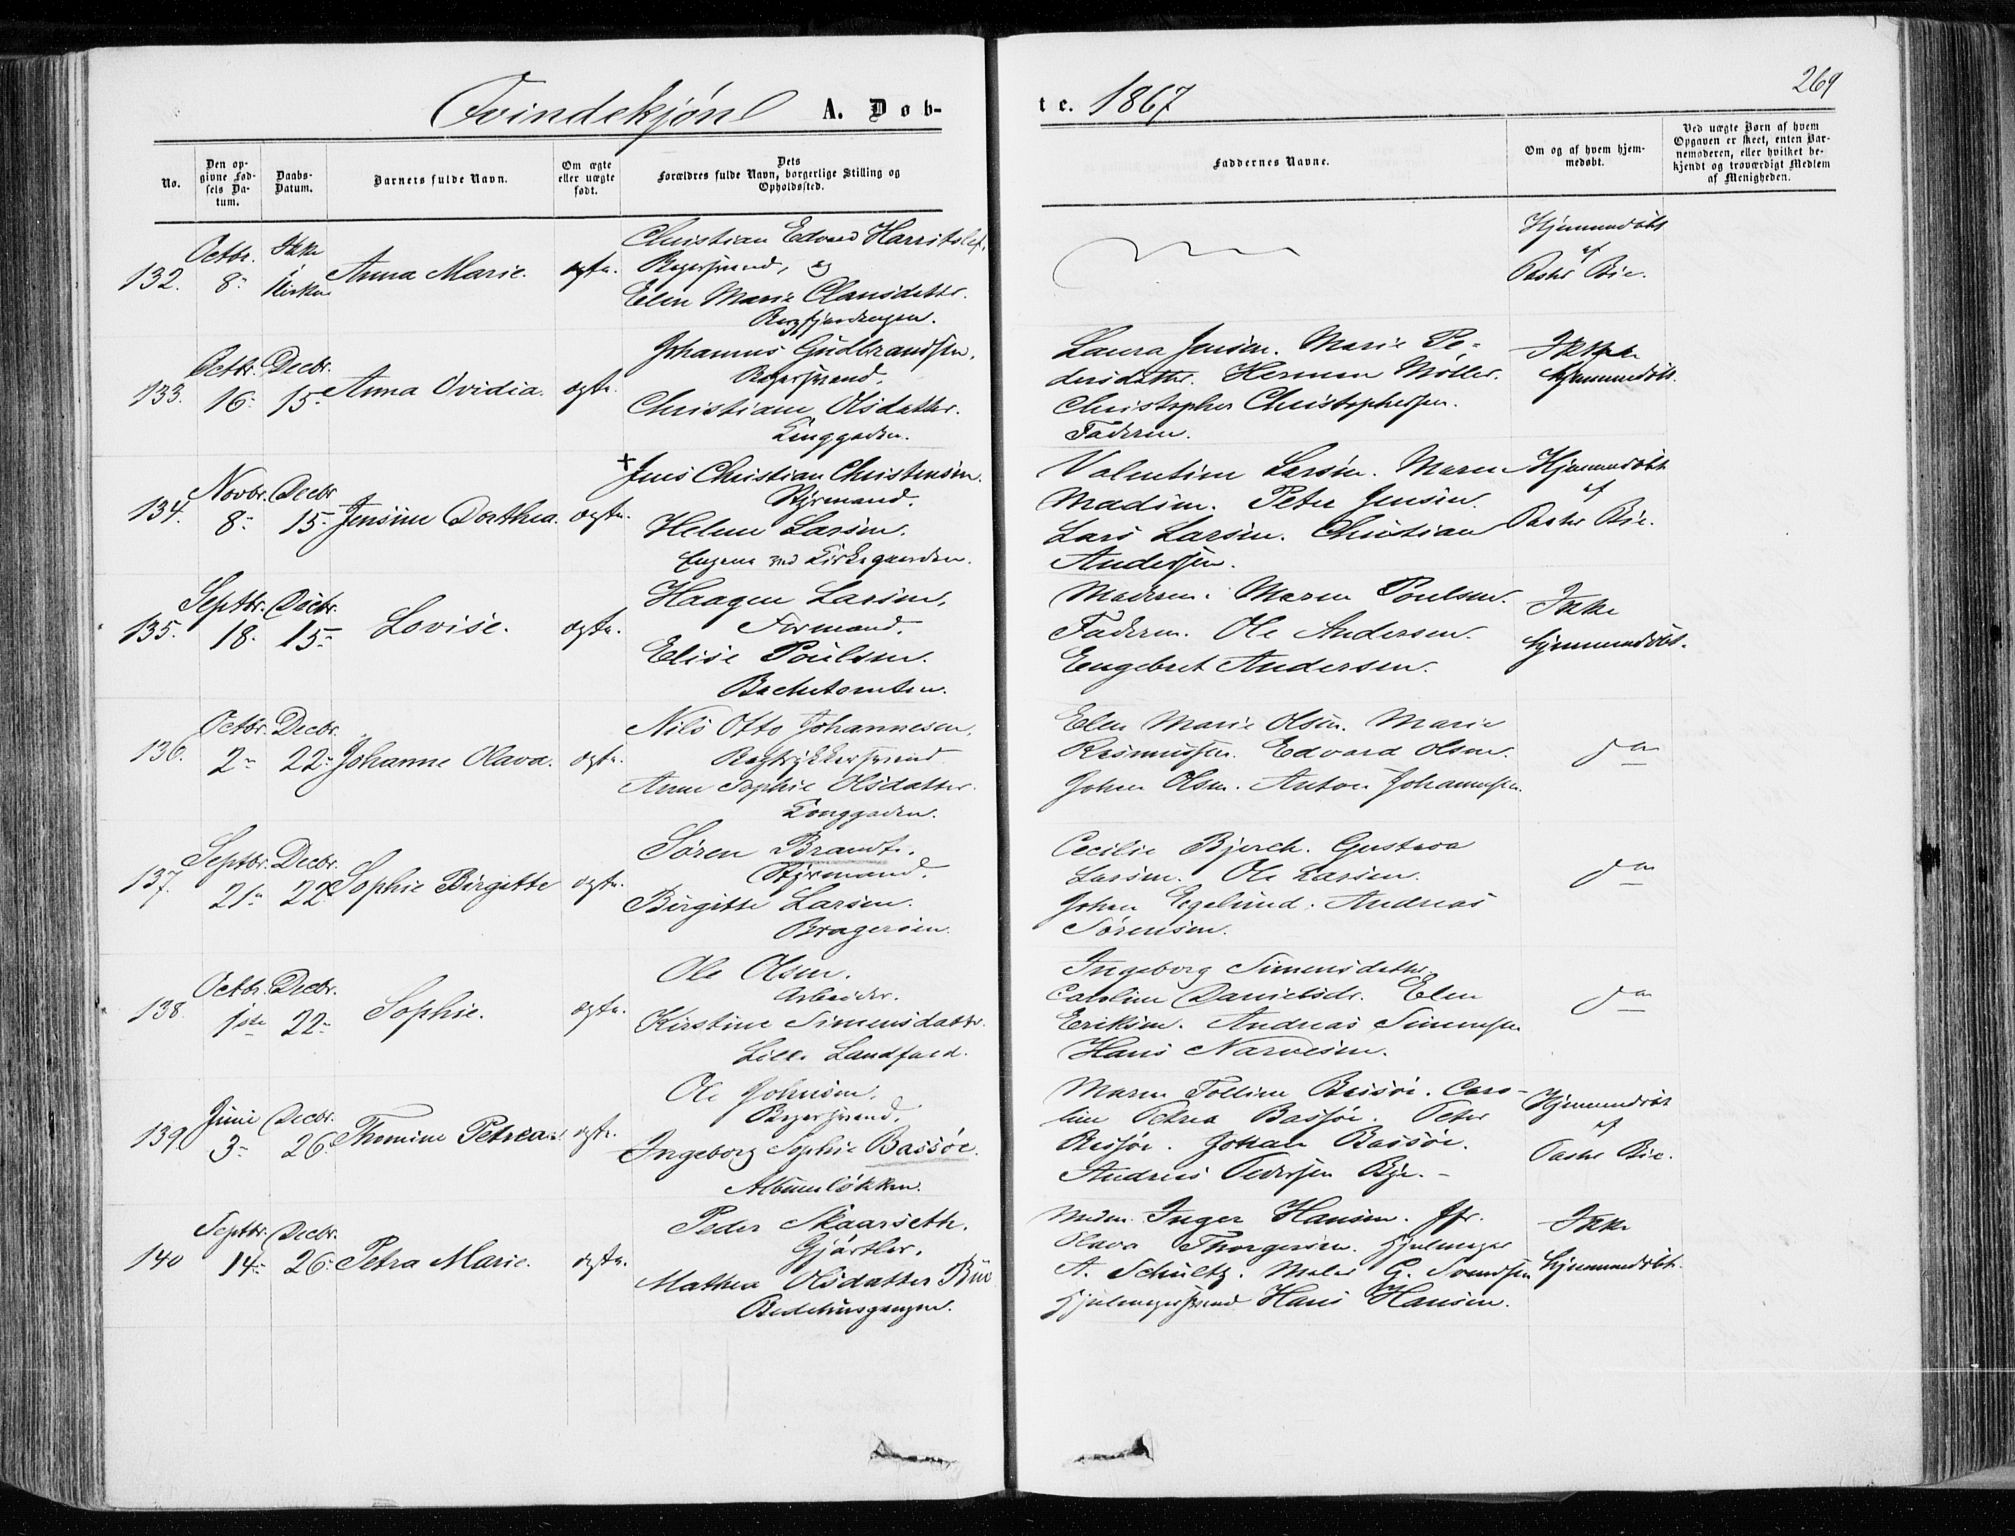 269
Qvindekjøn A. Døb-
te. 1867
No.
Den op-
givne Fød-
sels Da-
tum.
Daabs-
Datum.
Barnets fulde Navn.
Om ægte
eller uægte
født.
Dets
Forældres fulde Navn, borgerlige Stilling og
Opholdssted.
Faddernes Navne.
Om og af hvem hjem-
medøbt.
Ved uægte Børn af hvem
Opgaven er skeet, enten Bar-
nemoderen, eller hvilket be-
kjendt og troværdigt Medlem
af Menigheden.
132.
Octbr.
8
Ikke
i
Kirken
Anna Marie.
ægte.
Christian Edvard
Bagersvend, og
Elen Marie Clausdatter.
Hjemmedøbt
af
Pastor Bie.
133.
Octbr.
16
Decbr.
15
Anna Ovidia.
ægte.
Johannes Gudbrandsen.
Bagersvend.
Christiane Olsdatter.
Konggaden.
Laura Jensen. Marie Pe-
dersdatter. Herman Møller.
Christopher Christophersen.
Faderen.
Ikke
hjemmedøbt.
134.
Novbr.
8
Decbr
15
Jensine Dorthea.
ægte.
Jens Christian Christensen.
Styrmand.
Helene Larsen.
Engene ved Kirkegaarden.
Valentine Larsen. Maren
Madsen. Peter Jensen.
Lars Larsen. Christian
Andersen.
Hjemmedøbt
af
Pastor Bie.
135.
Septbr.
18
Decbr.
15
Lovise.
ægte.
Haagen Larsen.
Formand.
Elise Poulsen.
Moderen. Maren Poulsen.
Faderen. Ole Andersen.
Engebret Andersen.
Ikke
hjemmedøbt.
136.
Octbr.
2
Decbr.
22
Johanne Olava.
ægte.
Nils Otto Johannesen.
Anne Sophie Olsdatter.
Konggaden.
Elen Marie Olsen. Marie
Rasmussen. Edvard Olsen.
Johan Olsen. Anton Johannesen
do
137.
Septbr.
21
Decbr.
22
Sophie Birgitte
ægte.
Søren Brandt.
Styrmand.
Birgitte Larsen.
Bragerøen.
Cecilie Bjerch. Gustava
Larsen. Ole Larsen.
Johan Egelund. Andreas
Sørensen.
do
138.
Octbr.
1ste
Decbr.
22
Sophie.
ægte.
Ole Olsen.
Arbeider.
Kirstine Simensdatter.
Lille Landfald.
Ingeborg Simensdatter
Caroline Danielsdr. Elen
Eriksen. Andreas Simensen
Hans Narvesen.
do
139
Juni
3
Decbr.
26
Thomine Petrea
ægte.
Ole Johnsen.
Bagersvend.
Ingeborg Sophie Bassøe.
Albumsløkken.
Maren Talline Bassøe. Caro-
line Petrea Bassøe. Peter
Bassøe. Johan Bassøe.
Andreas Pedersen Bye.
Hjemmedøbt
af
Pastor Bie.
140
Septbr.
14
Decbr.
26
Petra Marie.
ægte.
Peder Skaarseth.
Gjørtler.
Mathea Olsdatter Bue
Bedehusgangen.
Madm. Inger Hansen. Jfr.
Olava Thorgersen. Hjulmager
A. Schultz. Maler G. Svendsen
Hjulmagersvend Hans Hansen.
Ikke
hjemmedøbt.